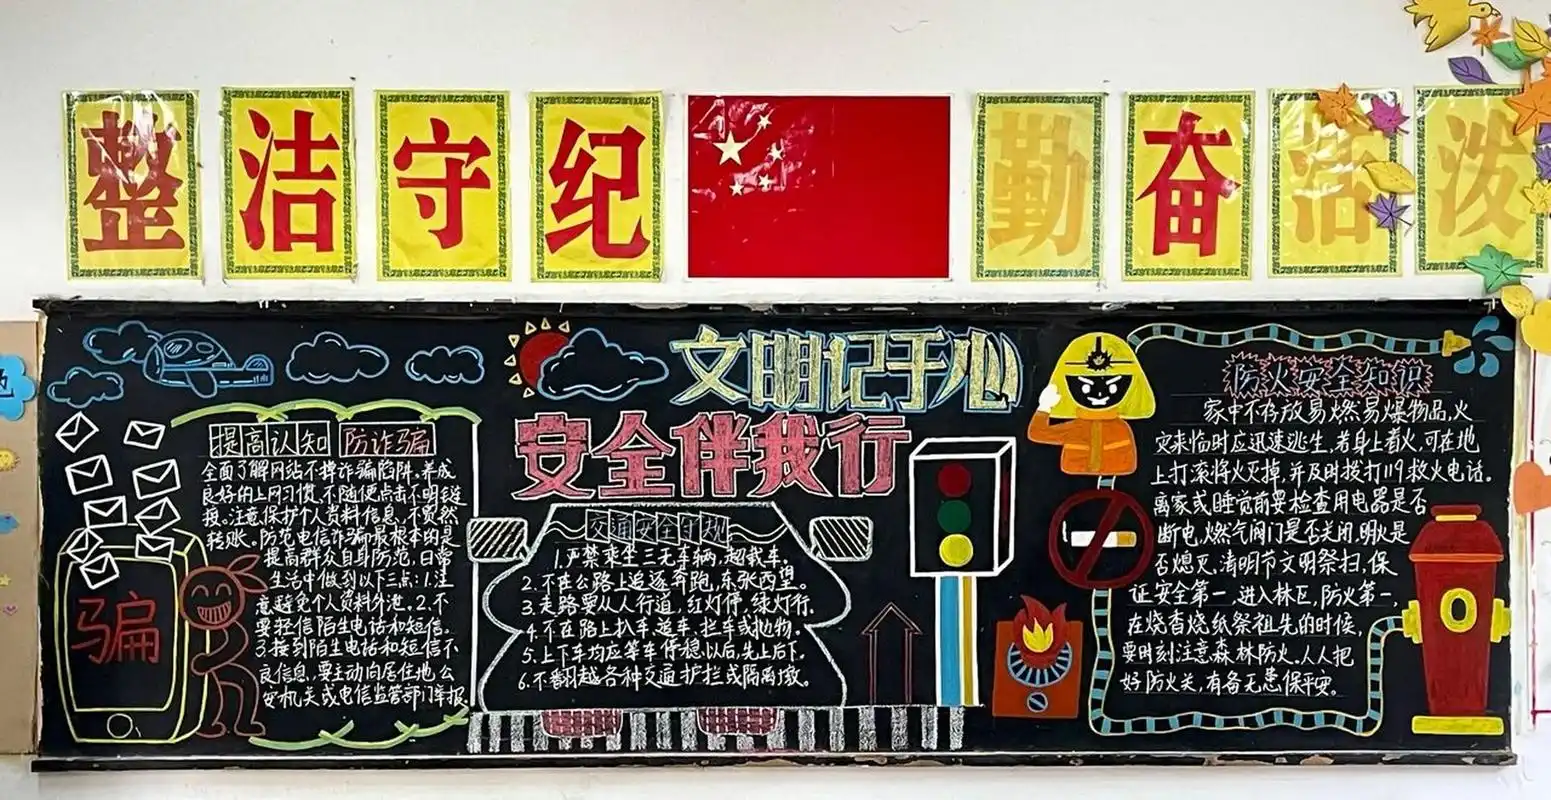 整洁守纪
勤奋活泼
文明记于心
安全伴我行
提高认知 防诈骗
全面了解网站不掉诈骗陷阱。养成
良好的上网习惯,不随便点击不明链
接。注意保护个人资料信息,不贸然
转账。防范电信诈骗最根本的是
提高群众自身防范,日常
生活中做到以下三点:1.注
意避免个人资料外泄。2.不
要轻信陌生电话和短信。
3.接到陌生电话和短信不
良信息,要主动向居住地公
安机关或电信监管部门举报.
骗
交通安全守规
1.严禁乘坐三无车辆,超载车。
2.不在公路上追逐奔跑,东张西望。
3.走路要从人行道,红灯停,绿灯行.
4.不在路上扒车.追车.拦车或抛物.
5.上下车均应等车停稳以后,先上后下.
6.不翻越各种交通护拦或隔离墩.
防火安全知识
家中不存放易燃易爆物品,火
灾来临时应迅速逃生,若身上着火,可在地
上打滚将火灭掉,并及时拨打119救火电话。
离家或睡觉前要检查用电器是否
断电,燃气阀门是否关闭,明火是
否熄灭.清明节文明祭扫,保
证安全第一,进入林区,防火第一,
在烧香烧纸祭祖先的时候,
要时刻注意森林防火.人人把
好防火关,有备无患保平安.